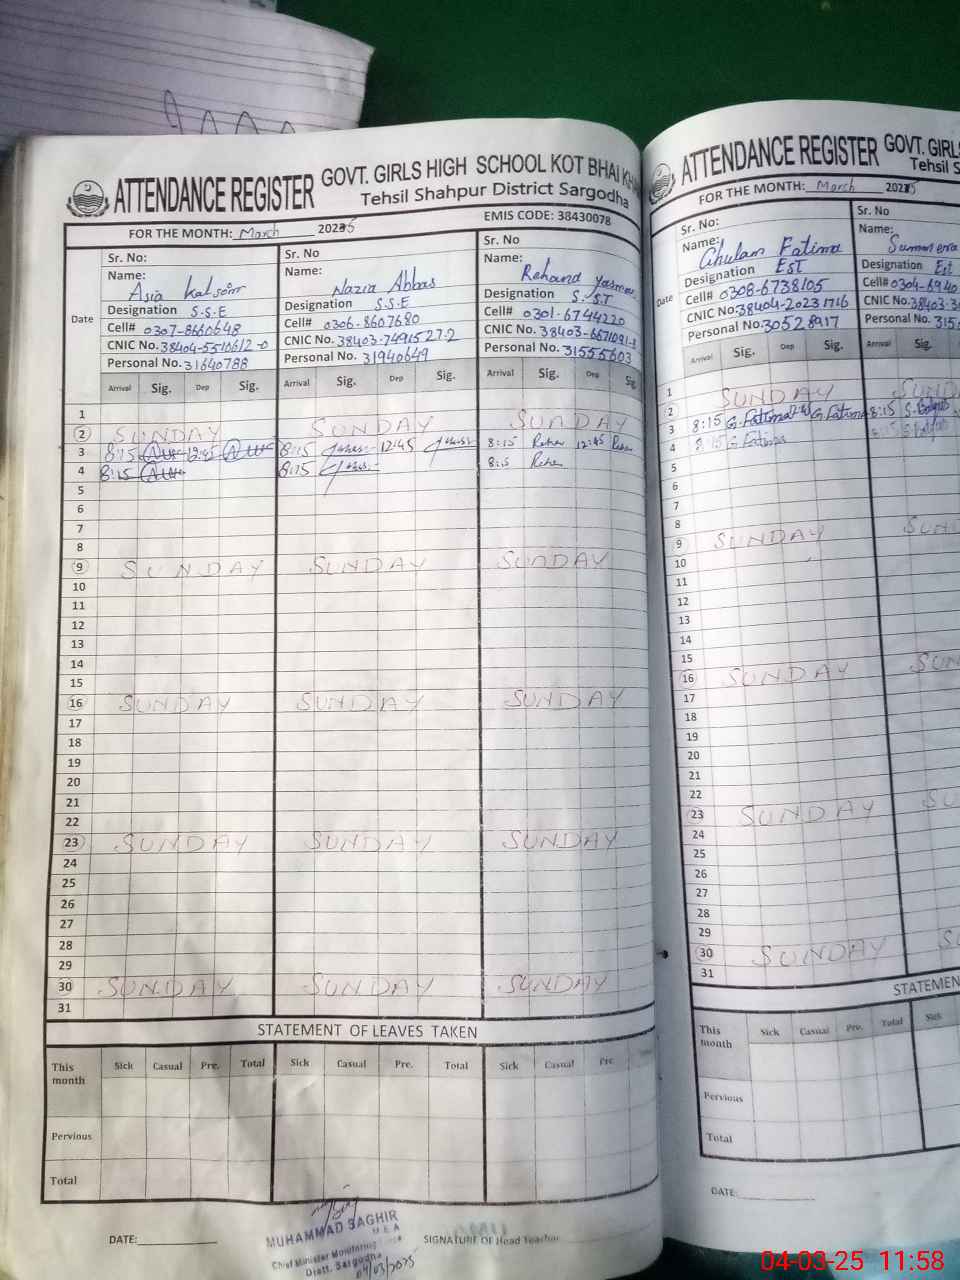 ATTENDANCE REGISTER GOVT. GIRLS HIGH SCHOOL KOT BHAI KHAN
Tehsil Shahpur District Sargodha
EMIS CODE: 38430078
FOR THE MONTH: March 2025
Date
Sr. No:
Name: Asia Kalsoom
Designation S.S.E
Cell# 0307-8660648
CNIC No. 38404-5510612-0
Personal No. 31640788
Arrival Sig. Dep Sig.
Sr. No
Name: Nazia Abbas
Designation S.S.E
Cell# 0306-8607680
CNIC No. 38403-7491527-2
Personal No. 31940649
Arrival Sig. Dep Sig.
Sr. No
Name: Rehana Yasmeen
Designation S.ST
Cell# 0301-6744220
CNIC No. 38403-6671091-8
Personal No. 31555603
Arrival Sig. Dep Sig.
1
2 SUNDAY SUNDAY SUNDAY
3 8:15 12:45 8:15 12:45 8:15 Reha 12:45 Reha
4 8:15 8:15 8:15 Reha
5
6
7
8
9 SUNDAY SUNDAY SUNDAY
10
11
12
13
14
15
16 SUNDAY SUNDAY SUNDAY
17
18
19
20
21
22
23 SUNDAY SUNDAY SUNDAY
24
25
26
27
28
29
30 SUNDAY SUNDAY SUNDAY
31
STATEMENT OF LEAVES TAKEN
This month Sick Casual Pre. Total Sick Casual Pre. Total Sick Casual Pre. Total
Pervious
Total
DATE:
MUHAMMAD SAGHIR
M.E.A
Chief Minister Monitoring Force
Distt. Sargodha
04/03/2025
SIGNATURE OF Head Teacher
ATTENDANCE REGISTER GOVT. GIRLS
Tehsil S
FOR THE MONTH: March 2025
Date
Sr. No:
Name: Ghulam Fatima
Designation EST
Cell# 0308-6738105
CNIC No: 38404-2023171-6
Personal No: 30528917
Arrival Sig. Dep Sig.
Sr. No
Name: Summera
Designation Est
Cell# 0304-6940
CNIC No. 38403-3
Personal No. 315
Arrival Sig.
1
2 SUNDAY SUND
3 8:15 G.Fatima 12:45 G.Fatima 8:15
4 8:15 G.Fatima 8:15
5
6
7
8
9 SUNDAY SUN
10
11
12
13
14
15
16 SUNDAY SUN
17
18
19
20
21
22
23 SUNDAY SU
24
25
26
27
28
29
30 SUNDAY S
31
STATEMEN
This month Sick Casual Pre. Total Sick
Pervious
Total
DATE:
04-03-25 11:58